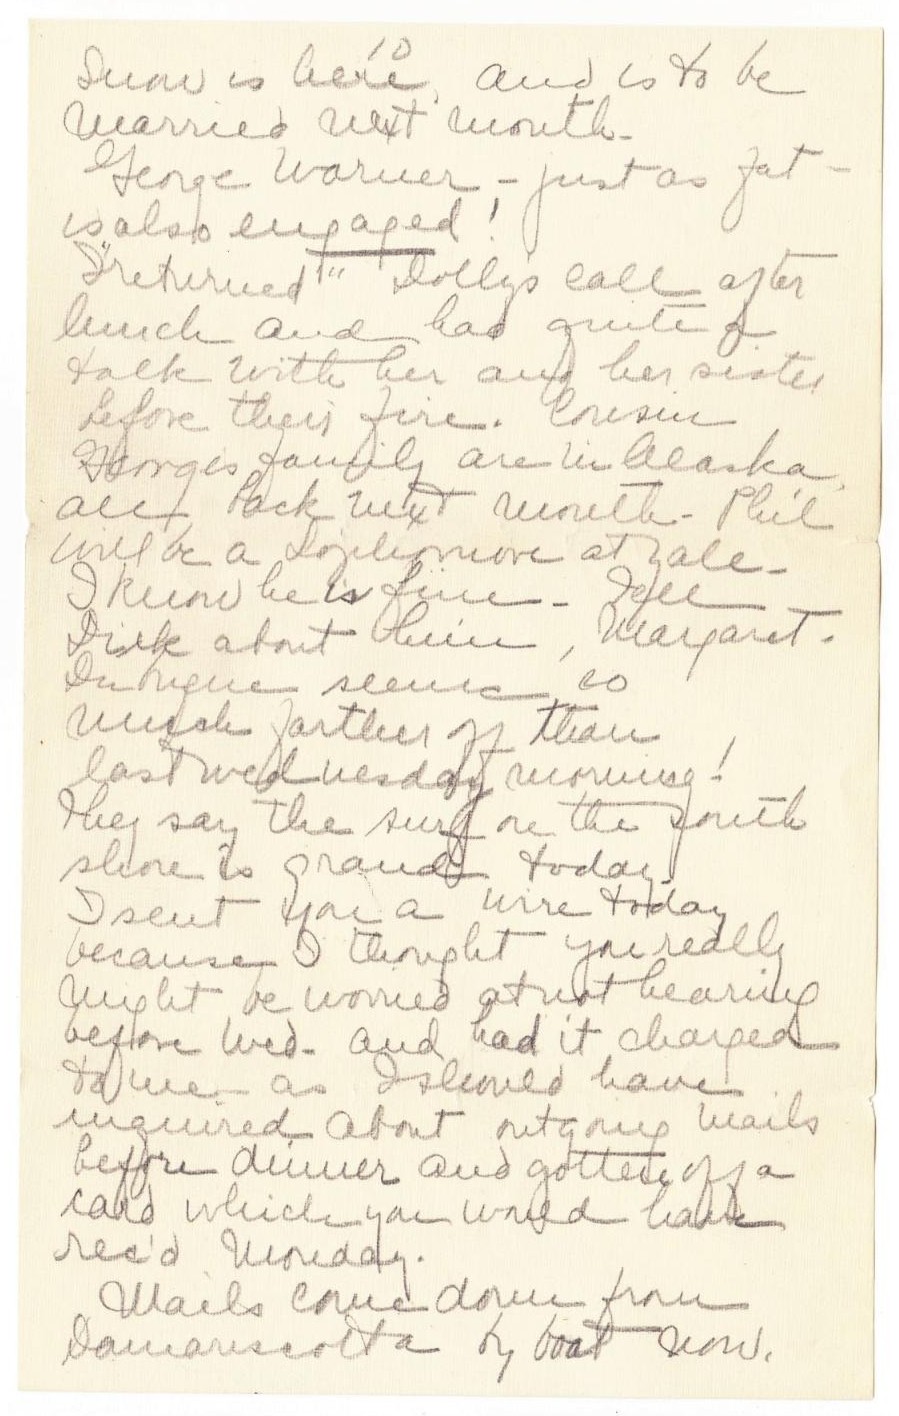 10
Snow is here, and is to be
married next month -
George Warner - just as fat -
is also engaged!
I "returned" Dolly's call after
lunch and had quite a
talk with her and her sister
before their fire. Cousin
George's family are in Alaska,
all back next month - Phil
will be a Sophomore at Yale -
I know he is fine - Tell
Dick about him, Margaret -
seems so
much farther off than
last Wednesday morning!
They say the surf on the south
shore is grand today.
I sent you a wire today
because I thought you really
might be worried at not hearing
before Wed. and had it charged
to me as I should have
inquired about outgoing mails
before dinner and gotten off a
card which you would have
rec'd Monday.
Mails come down from
Damariscotta by boat now.